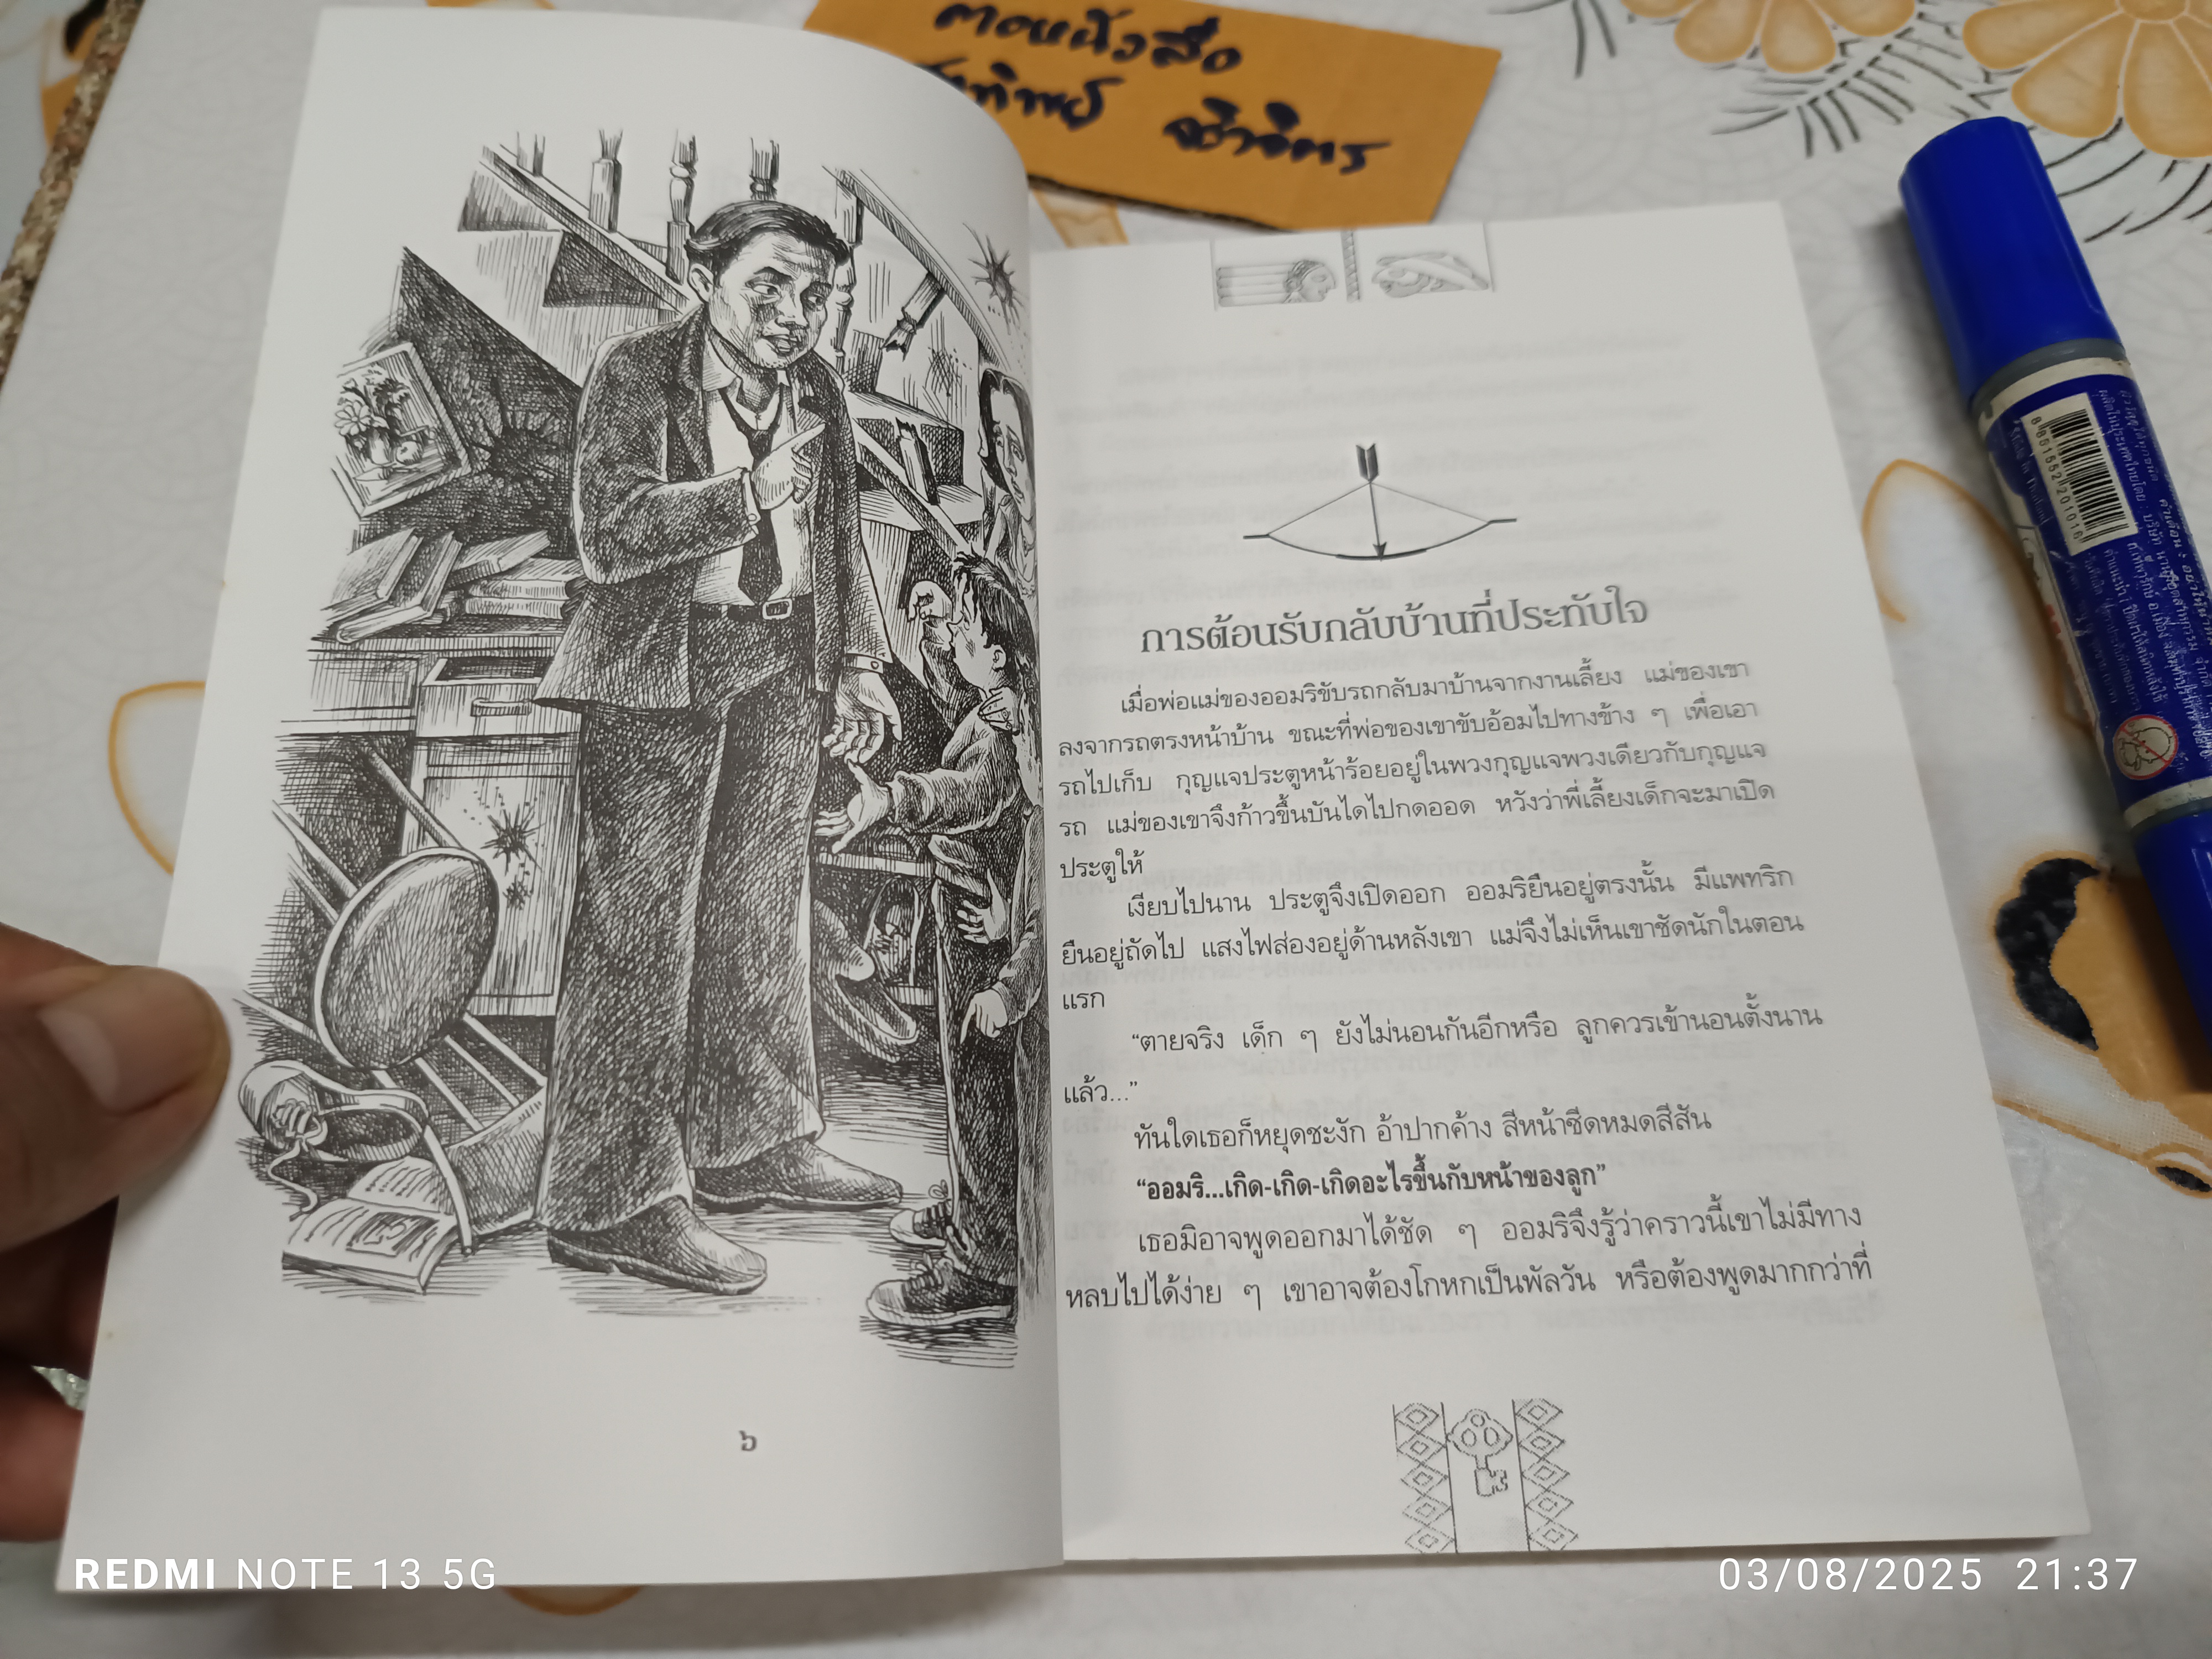 ตอหนังสือ
ทิพย์ จริจิตร
๖
การต้อนรับกลับบ้านที่ประทับใจ
เมื่อพ่อแม่ของออมริขับรถกลับมาบ้านจากงานเลี้ยง แม่ของเขา
ลงจากรถตรงหน้าบ้าน ขณะที่พ่อของเขาขับอ้อมไปทางข้าง ๆ เพื่อเอา
รถไปเก็บ กุญแจประตูหน้าร้อยอยู่ในพวงกุญแจพวงเดียวกับกุญแจ
รถ แม่ของเขาจึงก้าวขึ้นบันไดไปกดออด หวังว่าพี่เลี้ยงเด็กจะมาเปิด
ประตูให้
เงียบไปนาน ประตูจึงเปิดออก ออมริยืนอยู่ตรงนั้น มีแพทริก
ยืนอยู่ถัดไป แสงไฟส่องอยู่ด้านหลังเขา แม่จึงไม่เห็นเขาชัดนักในตอน
แรก
“ตายจริง เด็ก ๆ ยังไม่นอนกันอีกหรือ ลูกควรเข้านอนตั้งนาน
แล้ว...”
ทันใดเธอก็หยุดชะงัก อ้าปากค้าง สีหน้าซีดหมดสีสัน
“ออมริ...เกิด-เกิด-เกิดอะไรขึ้นกับหน้าของลูก”
เธอมิอาจพูดออกมาได้ชัด ๆ ออมริจึงรู้ว่าคราวนี้เขาไม่มีทาง
หลบไปได้ง่าย ๆ เขาอาจต้องโกหกเป็นพัลวัน หรือต้องพูดมากกว่าที่
8851552201016
REDMI NOTE 13 5G
03/08/2025 21:37